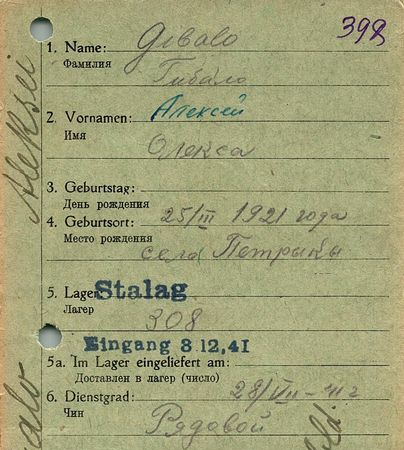 398
1. Name: Gibalo
Фамилия Гибало
2. Vornamen: Алексей
Имя Олекса
3. Geburtstag:
День рождения
4. Geburtsort: 25/III 1921 года
Место рождения
села Петрыкы
5. Lager Stalag
Лагер 308
Eingang 8.12.41
5a. Im Lager eingeliefert am:
Доставлен в лагер (число)
6. Dienstgrad: 28/VII-41 г
Чин Рядовой
Aleksei